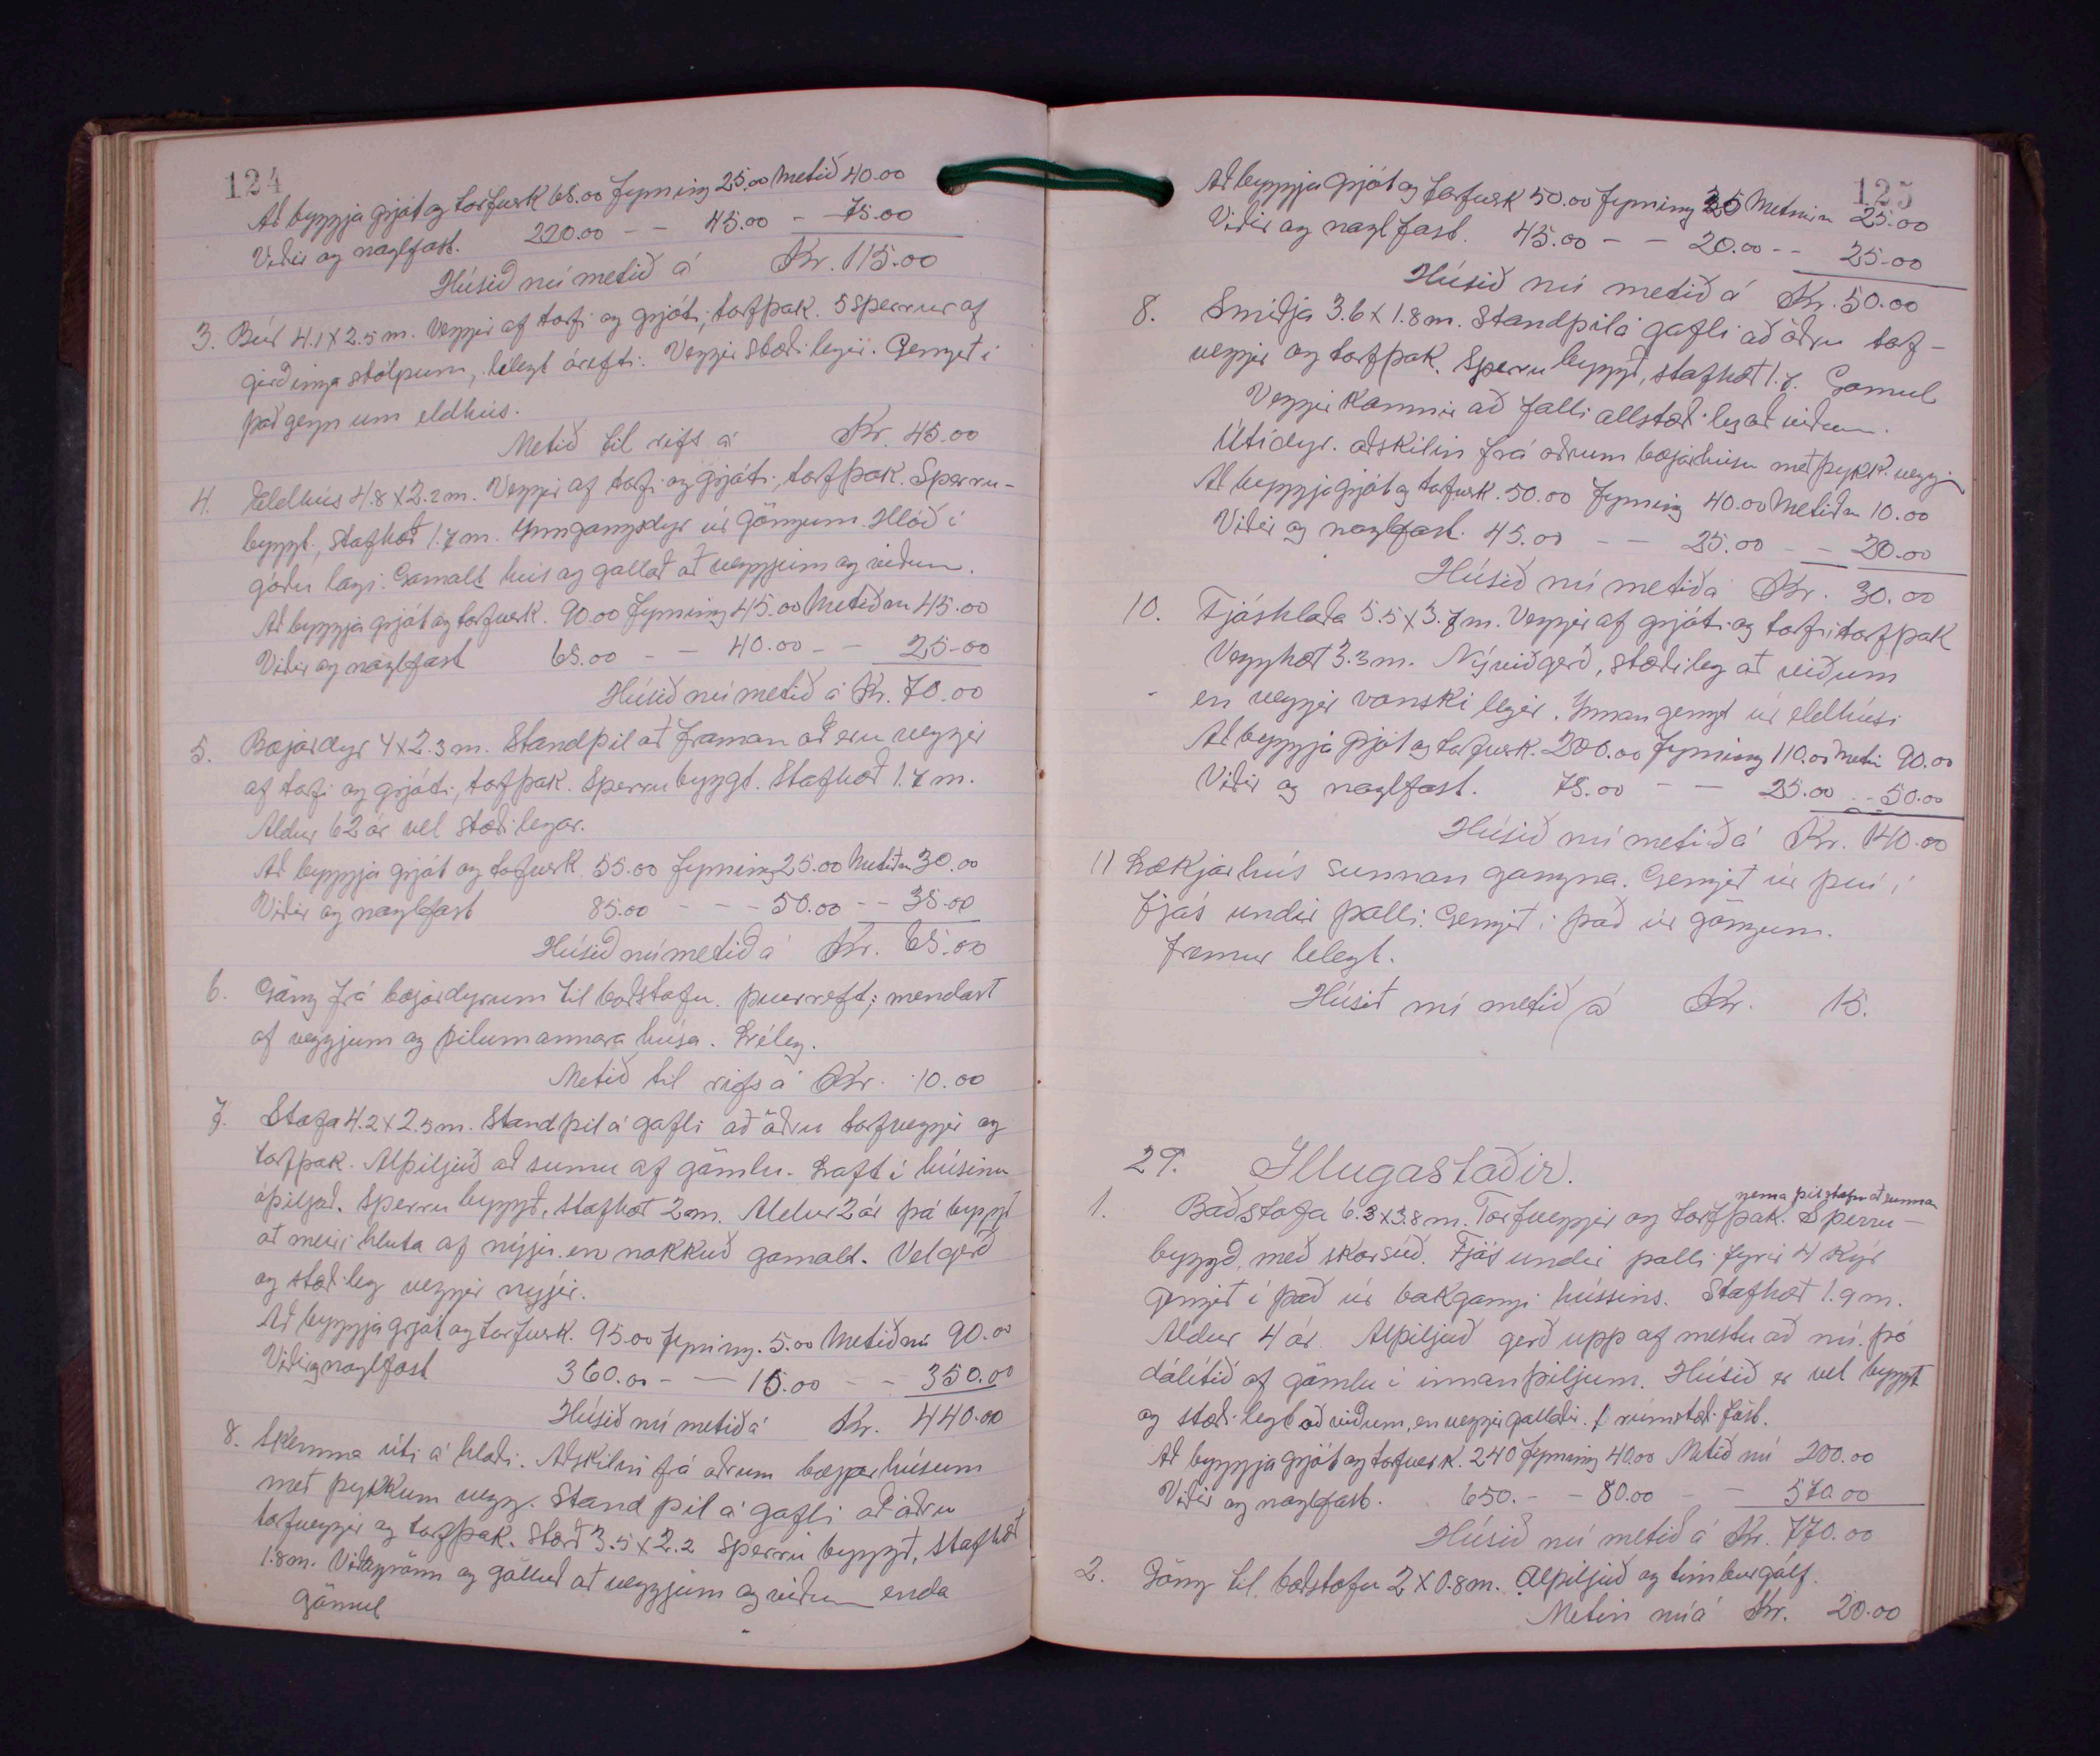 124
Að byggja grjót og torfverk 65.00 fyrning 25.00 Metið 40.00
Viðir og naglfast. 220.00 - - 45.00 - 75.00
Húsið nú metið á Kr. 115.00
3. Búr 4.1 x 2.5 m. Veggir af torfi og grjóti, torfþak. 5 sperrur af
girðinga stólpum, lélegt árefti. Veggir stæðilegir. Gengið í
það gegn um eldhús.
Metið til rifs á Kr. 45.00
4. Eldhús 4.8 x 2.2 m. Veggir af torfi og grjóti, torfþak. Sperru-
byggt, stafhæð 1.7 m. Inngangsdyr úr göngum. Hlóð í
góðu lagi. Gamalt hús og gallað að veggjum og viðum.
Að byggja grjót og torfverk. 90.00 fyrning 45.00 Metið nú 45.00
Viðir og naglfast 65.00 - - 40.00 - - 25.00
Húsið nú metið á Kr. 70.00
5. Bæjardyr 4 x 2.3 m. Standþil að framan að eru veggir
af torfi og grjóti, torfþak. Sperrubyggt. Stafhæð 1.7 m.
Aldur 62 ár vel stæðilegar.
Að byggja grjót og torfverk 55.00 fyrning 25.00 Metið nú 30.00
Viðir og naglfast 85.00 - - - 50.00 - - 35.00
Húsið nú metið á Kr. 65.00
6. Göng frá bæjardyrum til baðstofu. þverreft; mendast
af veggjum og þilum annara húsa. Léleg.
Metið til rifs á Kr. 10.00
7. Stofa 4.2 x 2.5 m. Standþil á gafli að öðru torfveggir og
torfþak. Alþiljuð að sumu af gömlu. Loft í húsinu
óþiljað. Sperru byggð, stafhæð 2 m. Aldur 2 ár þá byggt
að meiri hluta af nýju en nokkuð gamalt. Vel gerð
og stæðileg veggir nýjir.
Að byggja grjót og torfverk. 95.00 fyrning. 5.00 Metið nú 90.00
Viðir og naglfast 360.00 - - 10.00 - - 350.00
Húsið nú metið á Kr. 440.00
8. Skemma úti á hlaði. Aðskilin frá öðrum bæjar húsum
með þykkum vegg. Stand þil á gafli að öðru
torfveggir og torfþak. Stærð 3.5 x 2.2 Sperru byggð, stafhæð
1.8 m. Viðagrönn og gölluð að veggjum og viðum enda
gömul
125
Að byggja grjót og torfverk 50.00 fyrning 25 Metin nú 25.00
Viðir og naglfast. 45.00 - - 20.00 - - 25.00
Húsið nú metið á Kr. 50.00
8. Smiðja 3.6 x 1.8 m. Standþil á gafli að öðru torf-
veggir og torfþak. Sperru byggð, stafhæð 1.7. Gömul
Veggir komnir að falli allstæðileg að viðum.
Útidyr. aðskilin frá öðrum bæjarhúsum með þykk. vegg
Að byggja grjót og torfverk. 50.00 fyrning 40.00 Metið nú 10.00
Viðir og naglfast. 45.00 - - 25.00 - - 20.00
Húsið nú metið á Kr. 30.00
10. Fjóshlaða 5.5 x 3.7 m. Veggir af grjóti og torfi, torfþak
Vegghæð 3.3 m. Ný viðgerð, stæðileg að viðum
en veggir vanski legir. Innangengt úr eldhúsi
Að byggja grjót og torfverk. 200.00 fyrning 110.00 Metin 90.00
Viðir og naglfast. 75.00 - - 25.00 - - 50.00
Húsið nú metið á Kr. 140.00
11 Lækjarhús sunnan gangna. Gengið úr því í
fjós undir palli. Gengið í það úr göngum.
fremur lélegt.
Húsið nú metið á Kr. 15.
29. Illugastaðir.
nema þil stafn að sunnan
1. Baðstofa 6.3 x 3.8 m. Torfveggir og torfþak. Sperru-
byggð, með skarsúð. Fjós undir palli fyrir 4 kýr
gengið í það úr bakgangi hússins. Stafhæð 1.9 m.
Aldur 4 ár. Alþiljuð gerð upp af mestu að nú. þó
dálitið af gömlu í innanþiljum. Húsið er vel byggt
og stæðilegt að viðum, en veggir gallaðir. 6 rúmstæði föst.
Að byggja grjót og torfverk. 240 fyrning 40.00 Metið nú 200.00
Viðir og naglfast. 650. - - 80.00 - - 570.00
Húsið nú metið á Kr. 770.00
2. Göng til baðstofu 2 x 0.8 m. Alþiljuð og timburgólf.
Metin nú á Kr. 20.00